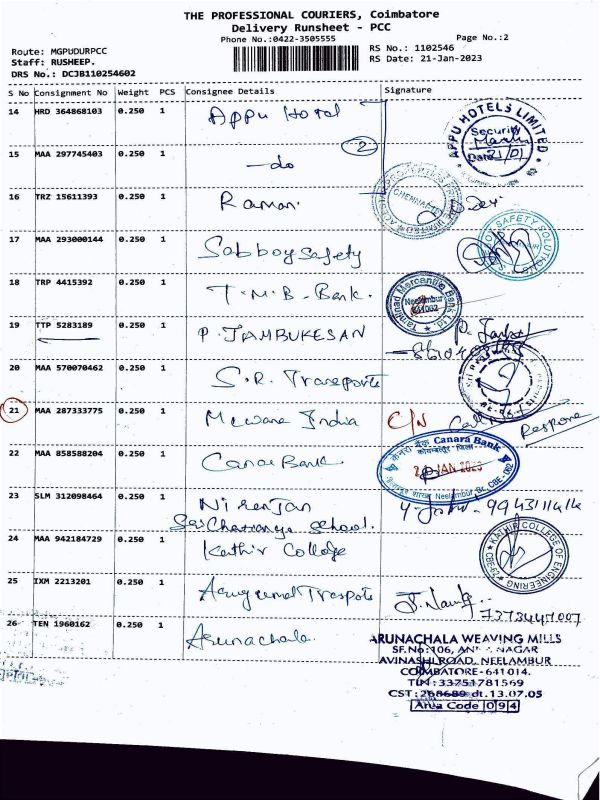 THE PROFESSIONAL COURIERS, Coimbatore
Delivery Runsheet - PCC
Phone No.:0422-3505555
Page No.:2
Route: MGPUDURPCC
Staff: RUSHEEP.
DRS No.: DCJB110254602
RS No.: 1102546
RS Date: 21-Jan-2023
S No Consignment No Weight PCS Consignee Details Signature
14 HRD 364868103 0.250 1 Appu Hotel
APPU HOTELS LIMITED
Security
Date 21/01
15 MAA 297745403 0.250 1 -do 2
CHENNAI
16 TRZ 15611393 0.250 1 Raman.
17 MAA 293000144 0.250 1 Sabboysafety
SAFETY SOLUTIONS
18 TRP 4415392 0.250 1 T.M.B-Bank.
Tamilnad Mercantile Bank Ltd.
Neelambur
641062
19 TTP 5283189 0.250 1 P. JAMBUKESAN
20 MAA 570070462 0.250 1 S.R. Transports
21 MAA 287333775 0.250 1 Mewane India C/N Call Response
22 MAA 858588204 0.250 1 Canara Bank
केनरा बैंक Canara Bank
JAN 2023
Neelambur
23 SLM 312098464 0.250 1 Nirenjan
Sai Chaitanya School.
24 MAA 942184729 0.250 1 Kathir College
KATHIR COLLEGE OF ENGINEERING
25 IXM 2213201 0.250 1 Arugumal Trespots
7373447007
26 TEN 1960162 0.250 1 Arunachala.
ARUNACHALA WEAVING MILLS
SF.No:106, ANNA NAGAR
AVINASHI ROAD, NEELAMBUR
COIMBATORE-641014.
TIN:33751781569
CST:268689 dt.13.07.05
Area Code 094